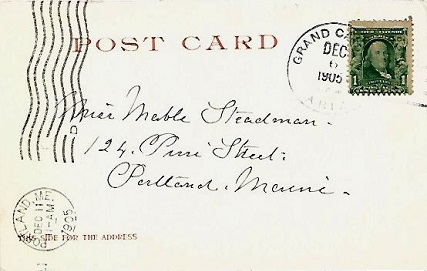 POST CARD
GRAND CA
DEC
6
1905
ARIZ
1
Miss Mable Steadman.
124 Pine Street.
Portland, Maine.
PORTLAND, ME.
DEC 11
AM
1905
THIS SIDE FOR THE ADDRESS